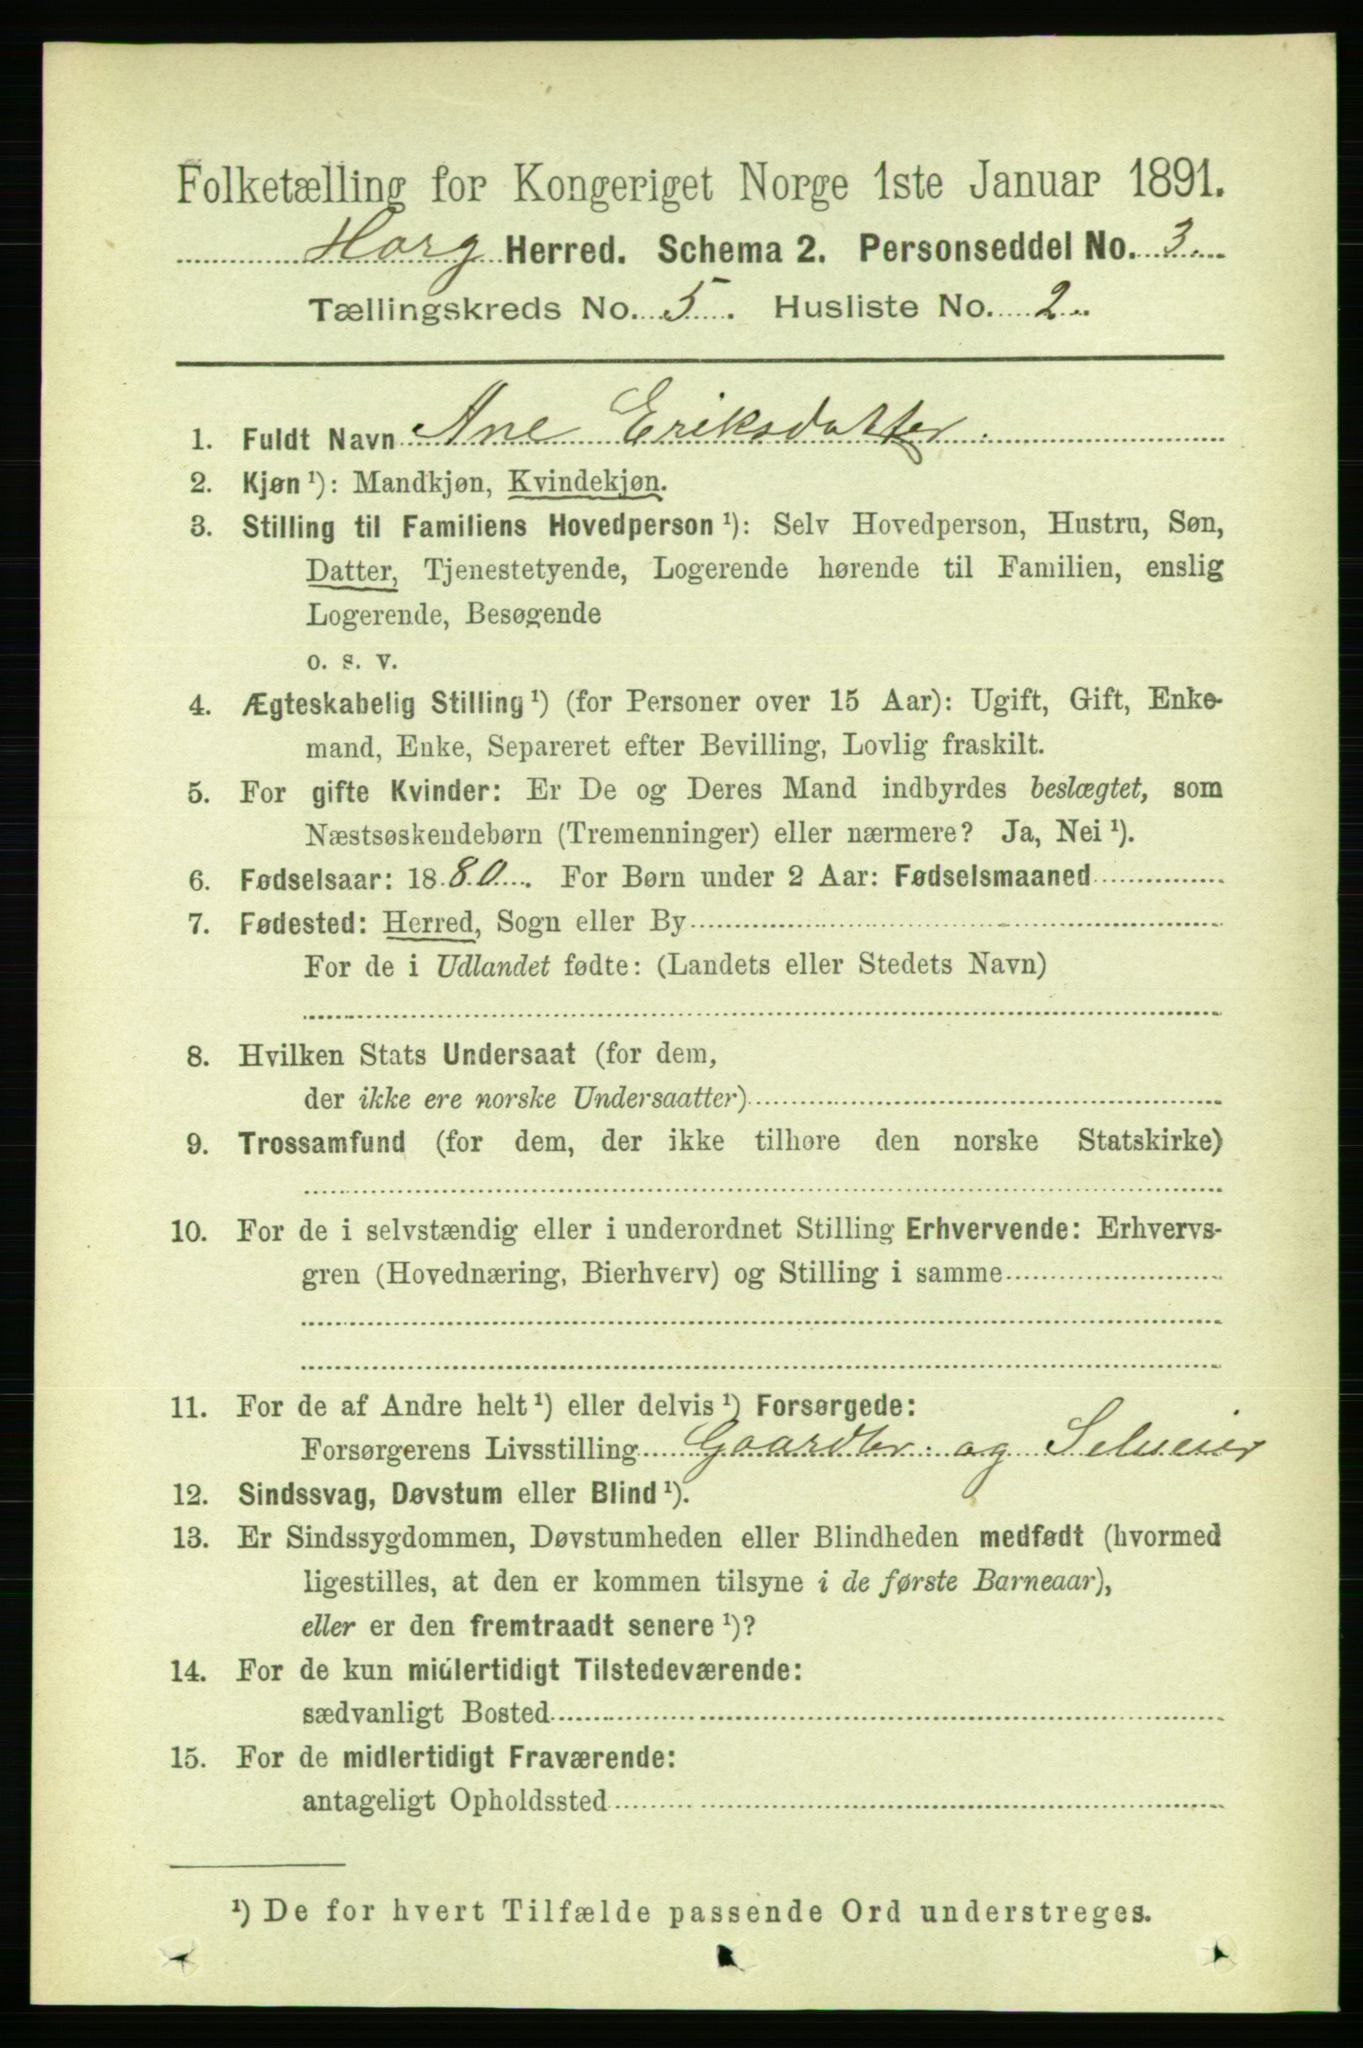 Folketælling for Kongeriget Norge 1ste Januar 1891.
Horg Herred. Schema 2. Personseddel No. 3.
Tællingskreds No. 5. Husliste No. 2.
1. Fuldt Navn Ane Eriksdatter.
2. Kjøn ¹): Mandkjøn, Kvindekjøn.
3. Stilling til Familiens Hovedperson ¹): Selv Hovedperson, Hustru, Søn,
Datter, Tjenestetyende, Logerende hørende til Familien, enslig
Logerende, Besøgende
o. s. v.
4. Ægteskabelig Stilling ¹) (for Personer over 15 Aar): Ugift, Gift, Enke-
mand, Enke, Separeret efter Bevilling, Lovlig fraskilt.
5. For gifte Kvinder: Er De og Deres Mand indbyrdes beslægtet, som
Næstsøskendebørn (Tremenninger) eller nærmere? Ja, Nei ¹).
6. Fødselsaar: 1880. For Børn under 2 Aar: Fødselsmaaned
7. Fødested: Herred, Sogn eller By
For de i Udlandet fødte: (Landets eller Stedets Navn)
8. Hvilken Stats Undersaat (for dem,
der ikke ere norske Undersaatter)
9. Trossamfund (for dem, der ikke tilhøre den norske Statskirke)
10. For de i selvstændig eller i underordnet Stilling Erhvervende: Erhvervs-
gren (Hovednæring, Bierhverv) og Stilling i samme
11. For de af Andre helt ¹) eller delvis ¹) Forsørgede:
Forsørgerens Livsstilling Gaardbr. og Selveier
12. Sindssvag, Døvstum eller Blind ¹).
13. Er Sindssygdommen, Døvstumheden eller Blindheden medfødt (hvormed
ligestilles, at den er kommen tilsyne i de første Barneaar),
eller er den fremtraadt senere ¹)?
14. For de kun midlertidigt Tilstedeværende:
sædvanligt Bosted
15. For de midlertidigt Fraværende:
antageligt Opholdssted
¹) De for hvert Tilfælde passende Ord understreges.